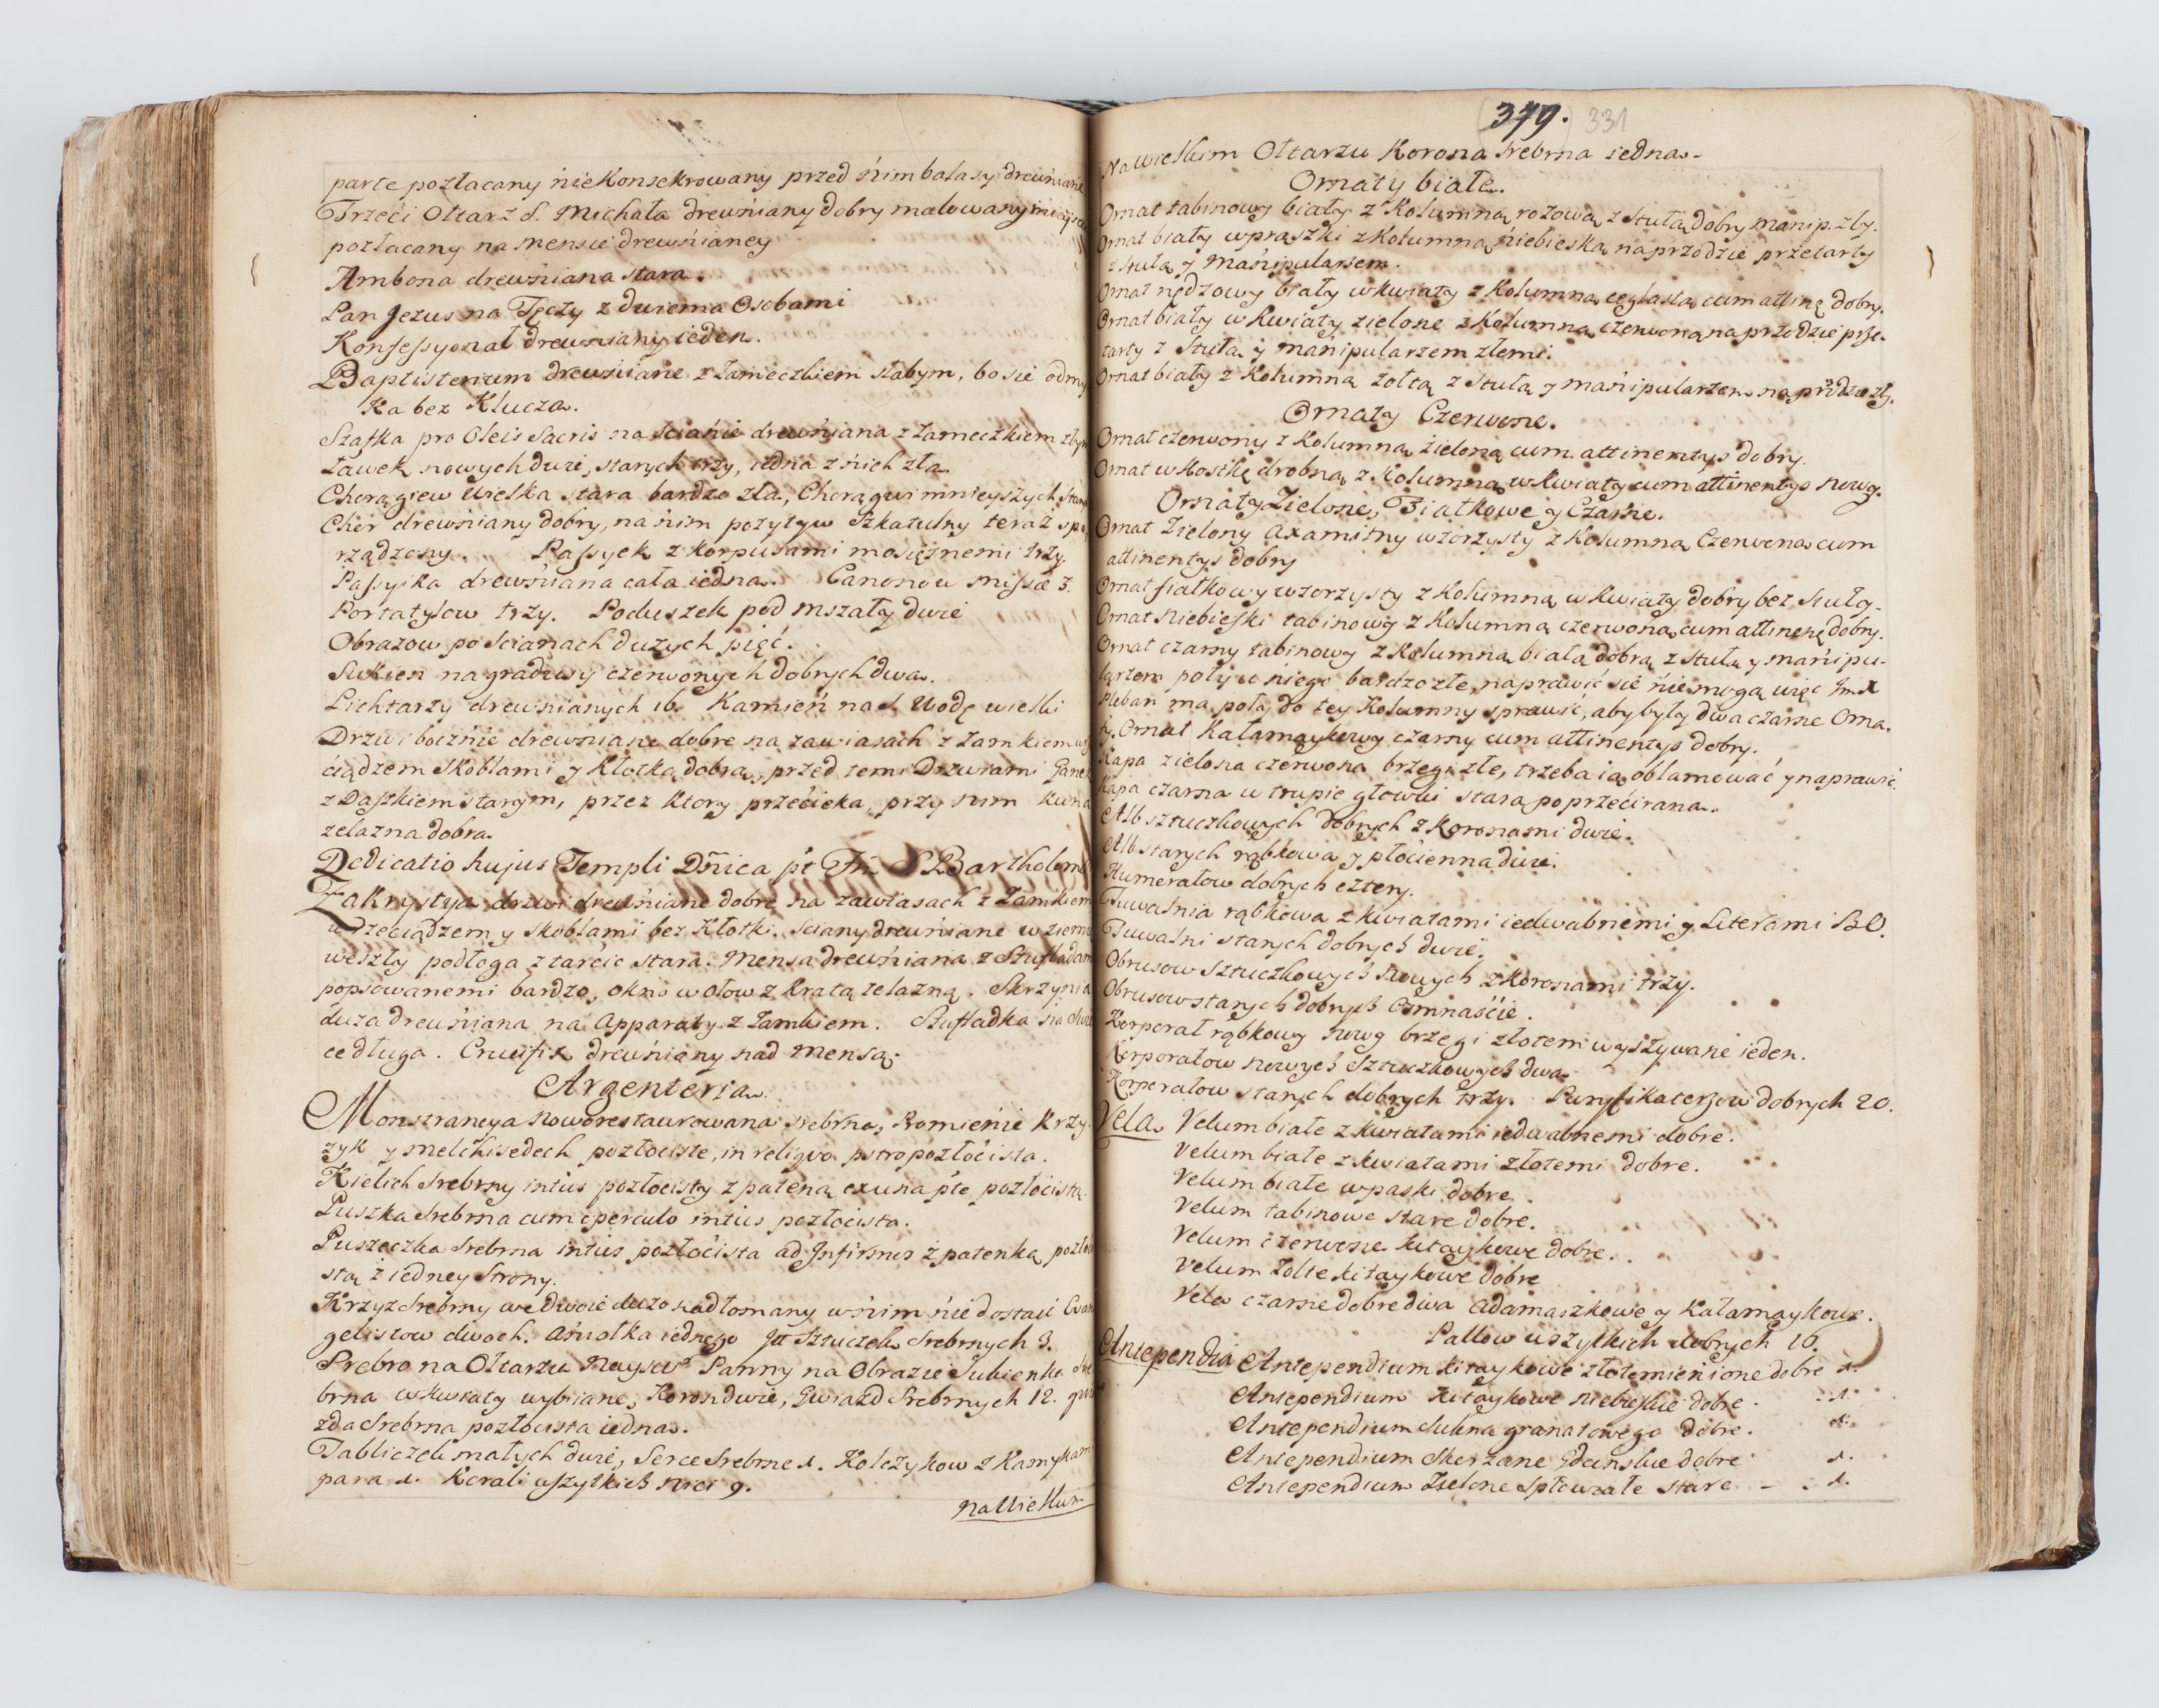 parte pozłacany nie Konsekrowany przed nim balasy drewniane
Trzeci Ołtarz S. Michała drewniany dobry malowany
pozłacany na mensie drewnianey
Ambona drewniana stara.
Pan Jezus na Tęczy z dwiema Osobami
Konfessyonał drewniany ieden.
Baptisterium drewniane z Zameczkiem słabym, bo sie odmy
Ka bez Klucza.
Szafka pro Oleis Sacris na scianie drewniana z zameczkiem złym
Ławek nowych dwie, starych trzy, iedna z nich zła
Chorągiew wielka stara bardzo zła, Chorągwi mnieyszych
Chór drewniany dobry, na nim pozytyw Szkatulny teraz spo
rządzony. Passyek z Korpusami mosiężnemi trzy.
Passyika drewniana cała iedna. Canonow missæ 3.
Portatylow trzy. Poduszek pod mszały dwie
Obrazow po Scianach dużych pięć.
Sukien na gradusy czerwonych dobrych dwa.
Lichtarzy drewnianych 16. Kamień na S. Wodę wielki
Drzwi bocznie drewniane dobre na zawiasach z Zamkiem
ciądzem Skoblami y Kłotką dobrą, przed temi Drzwiami Ganek
z Daszkiem starym, przez ktory przecieka, przy nim Kuna
zelazna dobra.
Dedicatio hujus Templi Dñica pt S Bartholom
Zakrystya drzwi drewniane dobre na zawiasach z Zamkiem
wrzeciądzem y skoblami bez Kłotki. Sciany drewniane w ziemi
weszły podłoga z tarcic stara. Mensa drewniana z Szufladam
popsowanemi bardzo, okno w ołow z kratą zelazną. Skrzynia
duza drewniana na Apparaty z Zamkiem. Szufladka na
ce długa. Crucifix drewniany nad Mensą.
Argenteria.
Monstrancya Noworestaurowana srebrna, Promienie Krzy
zyk y Melchisedech pozłociste, in reliqvo pstro pozłocista.
Kielich Srebrny intus pozłocisty z pateną ex una pte pozłocistą.
Puszka Srebrna cum operculo intus pozłocista.
Puszeczka Srebrna intus pozłocista ad Infirmos z patenką pozłoci
stą z iedney Strony.
Krzyz Srebrny we Dwoie duzo nadłomany w nim nie dostaie Evan
gelistow dwoch. Aniołka iednego Jtt Sztuczek Srebrnych 3.
Srebro na Ołtarzu Nayśw Panny na Obrazie Sukienka Sre
brna w kwiaty wybiiane, Koron dwie, Gwiazd Srebrnych 12. gwia
zda Srebrna pozłocista iedna.
Tabliczek małych dwie, Serce Srebrne 1. Kolczykow z Kamykam
para 1. Korali wszytkich nici 9.
Na Wielkim
379. 331
Na wielkim Ołtarzu Korona Srebrna iedna.
Ornaty białe.
Ornat tabinowy biały z Kolumną rożową, z Stułą dobry manip. zły.
Ornat biały w prążki z Kolumną niebieską na przodzie przetarty
z Stułą y Manipularzem.
Ornat biały w kwiaty z Kolumną ceglastą cum attin dobry.
Ornat biały w Kwiaty zielone z Kolumną czerwoną na przodzie prze-
tarty z Stułą y manipularzem złemi.
Ornat biały z Kolumną żołtą z Stułą y manipularzem na przodzie zły.
Ornaty Czerwone.
Ornat czerwony z Kolumną zieloną cum attinentys dobry.
Ornat w Kostkę drobną, z Kolumną w kwiaty cum attinentys nowy.
Ornaty Zielone, Fiałkowe y Czarne.
Ornat Zielony Axamitny wzorzysty z Kolumną Czerwoną cum
attinentys dobry
Ornat fiałkowy wzorzysty z Kolumną w kwiaty dobry bez Stuły.
Ornat Niebieski tabinowy z Kolumną czerwoną cum attinen dobry.
Ornat czarny tabinowy z Kolumną białą dobrą z Stułą y manipu-
larzem poły u niego bardzo złe, naprawić sie nie mogą więc Jmx
Pleban ma poły do tey Kolumny sprawić, aby były dwa czarne Orna-
ty. Ornat Kałamaykowy czarny cum attinentys dobry.
Kapa zielona czerwona brzegi złe, trzeba ią oblamować y naprawić.
Kapa czarna w trupie głowki stara poprzecirana.
Alb sztuczkowych dobrych z Koronami dwie.
Alb starych rąbkowa y płocienna dwie.
Humerałow dobrych cztery.
Tuwalnia rąbkowa z kwiatami iedwabnemi y Literami BO.
Tuwalni starych dobrych dwie.
Obrusow Sztuczkowych Nowych z Koronami trzy.
Obrusow starych dobrych osmnaście.
Korporał rąbkowy nowy brzegi złotem wyszywane ieden.
Korporałow nowych Sztuczkowych dwa.
Korporałow starych dobrych trzy. Puryfikaterzow dobrych 20.
Vela. Velum białe z kwiatami iedwabnemi dobre.
Velum białe z kwiatami złotemi dobre.
Velum białe w paski dobre.
Velum tabinowe stare dobre.
Velum czerwone Kitaykowe dobre.
Velum Zolte Kitaykowe dobre
Vela czarne dobre dwa adamaszkowe y Kałamaykowe.
Pallow wszytkich dobrych 10.
Antependia Antependium Kitaykowe złotemienione dobre 1.
Antependium Kitaykowe niebieskie dobre. 1.
Antependium Sukna granatowego dobre. 1.
Antependium Skorzane Gdanskie dobre 1.
Antependium Zielone Spłowiałe stare 1.